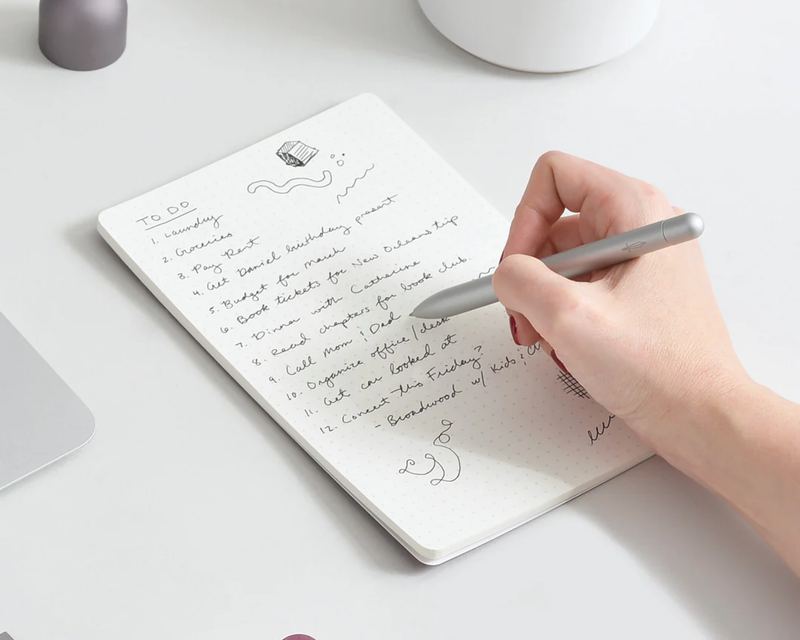 TO DO
1. Laundry
2. Groceries
3. Pay Rent
4. Get Daniel birthday present
5. Budget for March
6. Book tickets for New Orleans trip
7. Dinner with Catherine
8. Read chapters for book club.
9. Call Mom & Dad
10. Organize office/desk
11. Get car looked at
12. Concert this Friday?
- Broadwood w/ Kids &